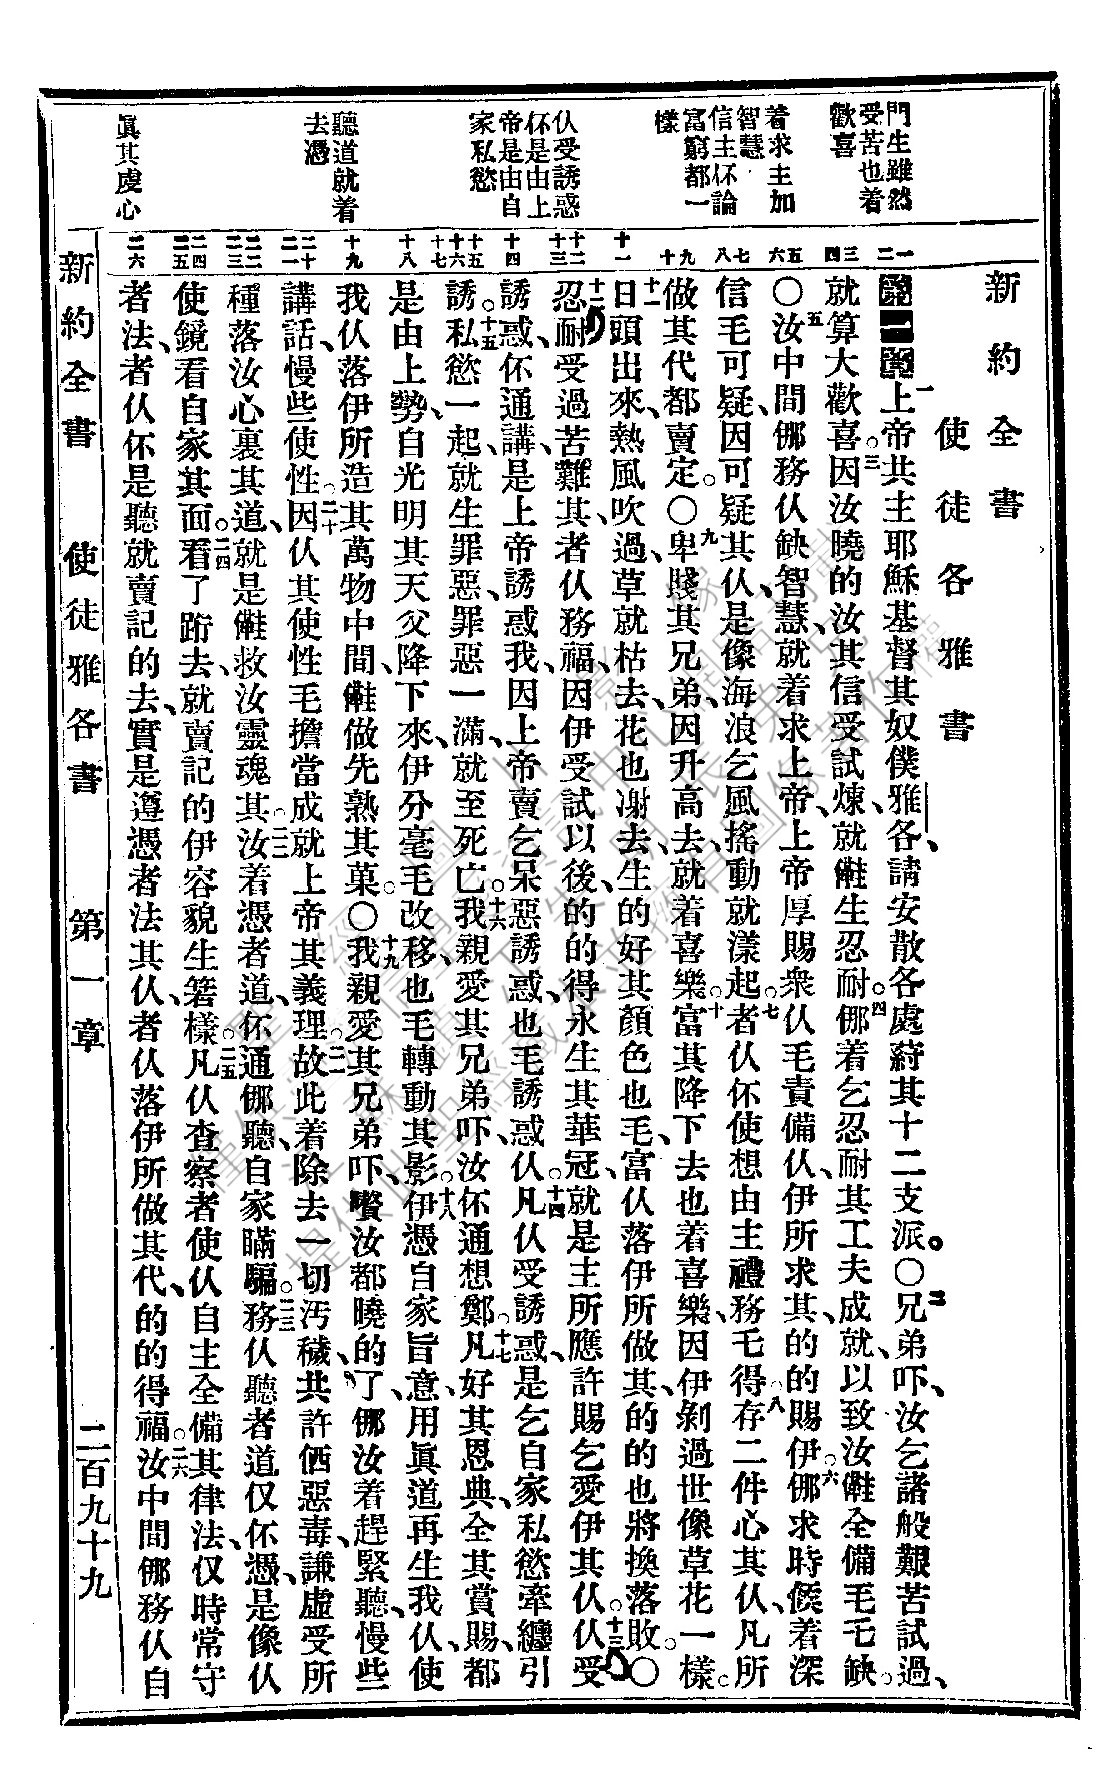 門生雖然
受苦也着
歡喜
着求主加
智慧
信主伓論
富窮都一
樣
仈受誘惑
伓是由上
帝是由自
家私慾
聽道就着
去憑
眞其虔心
新約全書
使徒各雅書
第一章一上帝共主耶穌基督其奴僕雅各、請安散各處蒔其十二支派。〇二兄弟吓、汝乞諸般艱苦試過、
就算大歡喜。三因汝曉的汝其信受試煉、就𣍐生忍耐。四㑚着乞忍耐其工夫成就、以致汝全備毛乇缺。
〇五汝中間㑚務仈缺智慧、就着求上帝、上帝厚賜衆仈毛責備仈、伊所求其的的賜伊。六㑚求時候着深
信毛可疑、因可疑其仈、是像海浪乞風搖動就漾起。七者仈伓使想由主禮務乇得存。八二件心其仈、凡所
做其代都賣定。〇九卑賤其兄弟、因升高去就着喜樂。十富其降下去也着喜樂、因伊剝過世像草花一樣。
十一日頭出來、熱風吹過、草就枯去、花也謝去、生的好其顏色也毛、富仈落伊所做其、的的也將換落敗。〇
十二忍耐受過苦難其、者仈務福、因伊受試以後、的的得永生其華冠、就是主所應許賜乞愛伊其仈。十三仈受
誘惑、伓通講、是上帝誘惑我、因上帝賣乞呆惡誘惑、也毛誘惑仈。十四凡仈受誘惑、是乞自家私慾牽纏引
誘。十五私慾一起、就生罪惡、罪惡一滿、就至死亡。十六我親愛其兄弟吓、汝伓通想鄭。十七凡好其恩典、全其賞賜、都
是由上勢、自光明其天父降下來、伊分毫毛改移、也毛轉動其影。十八伊憑自家旨意、用眞道再生我仈、使
我仈落伊所造其萬物中間、做先熟其菓。〇十九我親愛其兄弟吓、汝都曉的了、㑚汝着趕緊聽、慢些
講話、慢些使性。二十因仈其使性、毛擔當成就上帝其義理。二一故此着除去一切污穢、共許㑚惡毒、謙虛受所
種落汝心裏其道、就是救汝靈魂其。二二汝着憑者道、伓通㑚聽、自家瞞騙。二三務仈聽者道、仅伓憑、是像仈
使鏡看自家其面。二四看了跡去、就賣記的伊容貌生䆀樣。二五凡仈查察者使仈自主全備其律法、仅時常守
者法、者仈伓是聽就賣記的去、實是遵憑者法其仈、者仈落伊所做其代、的的得福。二六汝中間㑚務仈自
新約全書　使徒雅各書　第一章　二百九十九